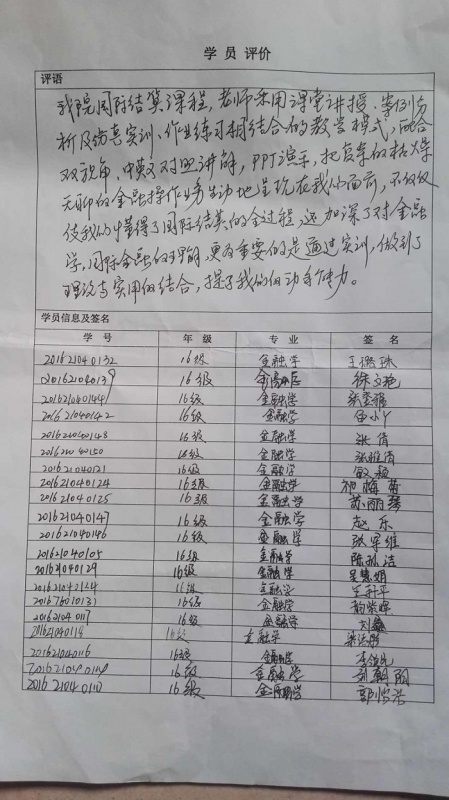 学 员 评价
评语
我院国际结算课程，老师采用课堂讲授、案例分
析及仿真实训、作业练习相结合的教学模式，融合
双视角、中英文对照讲解，PPT演示，把复杂的枯燥
无聊的金融操作业务生动地呈现在我们面前，不仅仅
使我们懂得了国际结算的全过程，还加深了对金融
学、国际金融的理解，更为重要的是通过实训，做到了
理论与实用的结合，提了我们的动手能力。
学员信息及签名
学 号 年 级 专 业 签 名
201621040132 16级 金融学
201621040139 16级 徐文艳
201621040144 16级 金融学
201621040142 16级 金融学
201621040148 16级 金融学 张倩
201621040150 16级 金融学
201621040121 16级 金融学
201621040124 16级 金融学 祁梅菊
201621040125 16级 金融学 苏丽琴
201621040147 16级 金融学 赵乐
201621040146 16级 金融学 张军维
201621040105 16级 金融学
201621040129 16级 金融学 吴慧娟
16级 金融学
16级 金融学
201621040117 16级 金融学 刘鑫
201621040118 16级 金融学
201621040116 16级 金融学
16级 金融学 刘朝丽
201621040110 16级 金融学